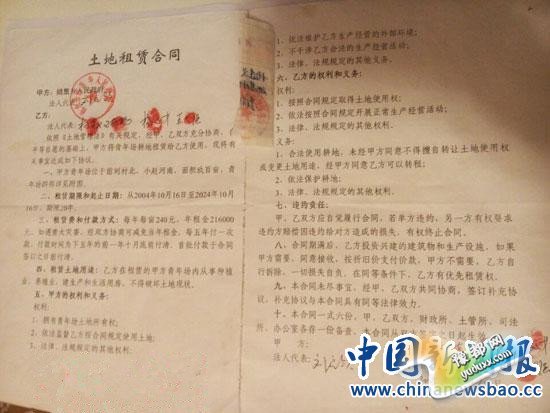 土地租赁合同
甲方：姚集乡人民政府
法人代表：
乙方：
法人代表：
依照《土地管理法》有关规定，经甲、乙双方充分协商，
平等自愿的基础上，甲方将青年场耕地租赁给乙方使用。现将有
关事宜达成如下协议。
一、甲方青年场位于
年场四邻详见附图。
二、租赁期限和起止日期：从2004年10月16日至2024年10月
16日期限，20年。
三、租赁费和付款方式：每年每亩240元，年租金216000
元。如遇重大灾害，经双方协商可减免当年租金。每五年付一次
款，付款时间为下五年的前一年十月底前付清。首批付款于合同
签订之日前付清。
四、租赁土地用途：乙方在租赁的甲方青年场内从事种植
业、养殖业，建生产和生活用房，不得破坏土地现状。
五、甲方的权利和义务：
权利：
1、拥有青年场土地所有权；
2、依法监督乙方按合同规定使用土地；
3、法律、法规规定的其他权利。
1、依法维护乙方生产经营的外部环境；
2、不干涉乙方合法的生产经营活动；
3、法律、法规规定的其他义务。
六、乙方的权利和义务：
权利：
1、按照合同规定取得土地使用权；
2、依法按照合同规定开展正常生产经营活动；
3、法律、法规规定的其他权利。
义务：
1、合法使用耕地，未经甲方同意不得擅自转让土地使用权
或变更土地用途。经甲方同意乙方可以转租；
2、依法保护耕地；
3、法律、法规规定的其他权利。
七、违约责任：
甲、乙双方应自觉履行合同，若单方违约，另一方有权要求
违约方赔偿因违约给对方造成的损失，有权终止合同。
八、合同期满后，乙方投资兴建的建筑物和生产设施，如果甲
方需要，同意接收，按折旧价支付价款，甲方不需要，乙方自
行拆除，一切损失自负，在同等条件下，乙方有优先租赁权。
九、本合同未尽事宜，经甲、乙双方共同协商，签订补充协
议，补充协议与本合同具有同等法律效力。
十、本合同一式六份，甲、乙双方、财政所、土管所、司法
所、办公室各存一份备查。本合同从双方签字之日起生效。
甲 方：
法人代表：
中国新闻报
豫都网
yuduxx.com
www.chinanewsbao.cc